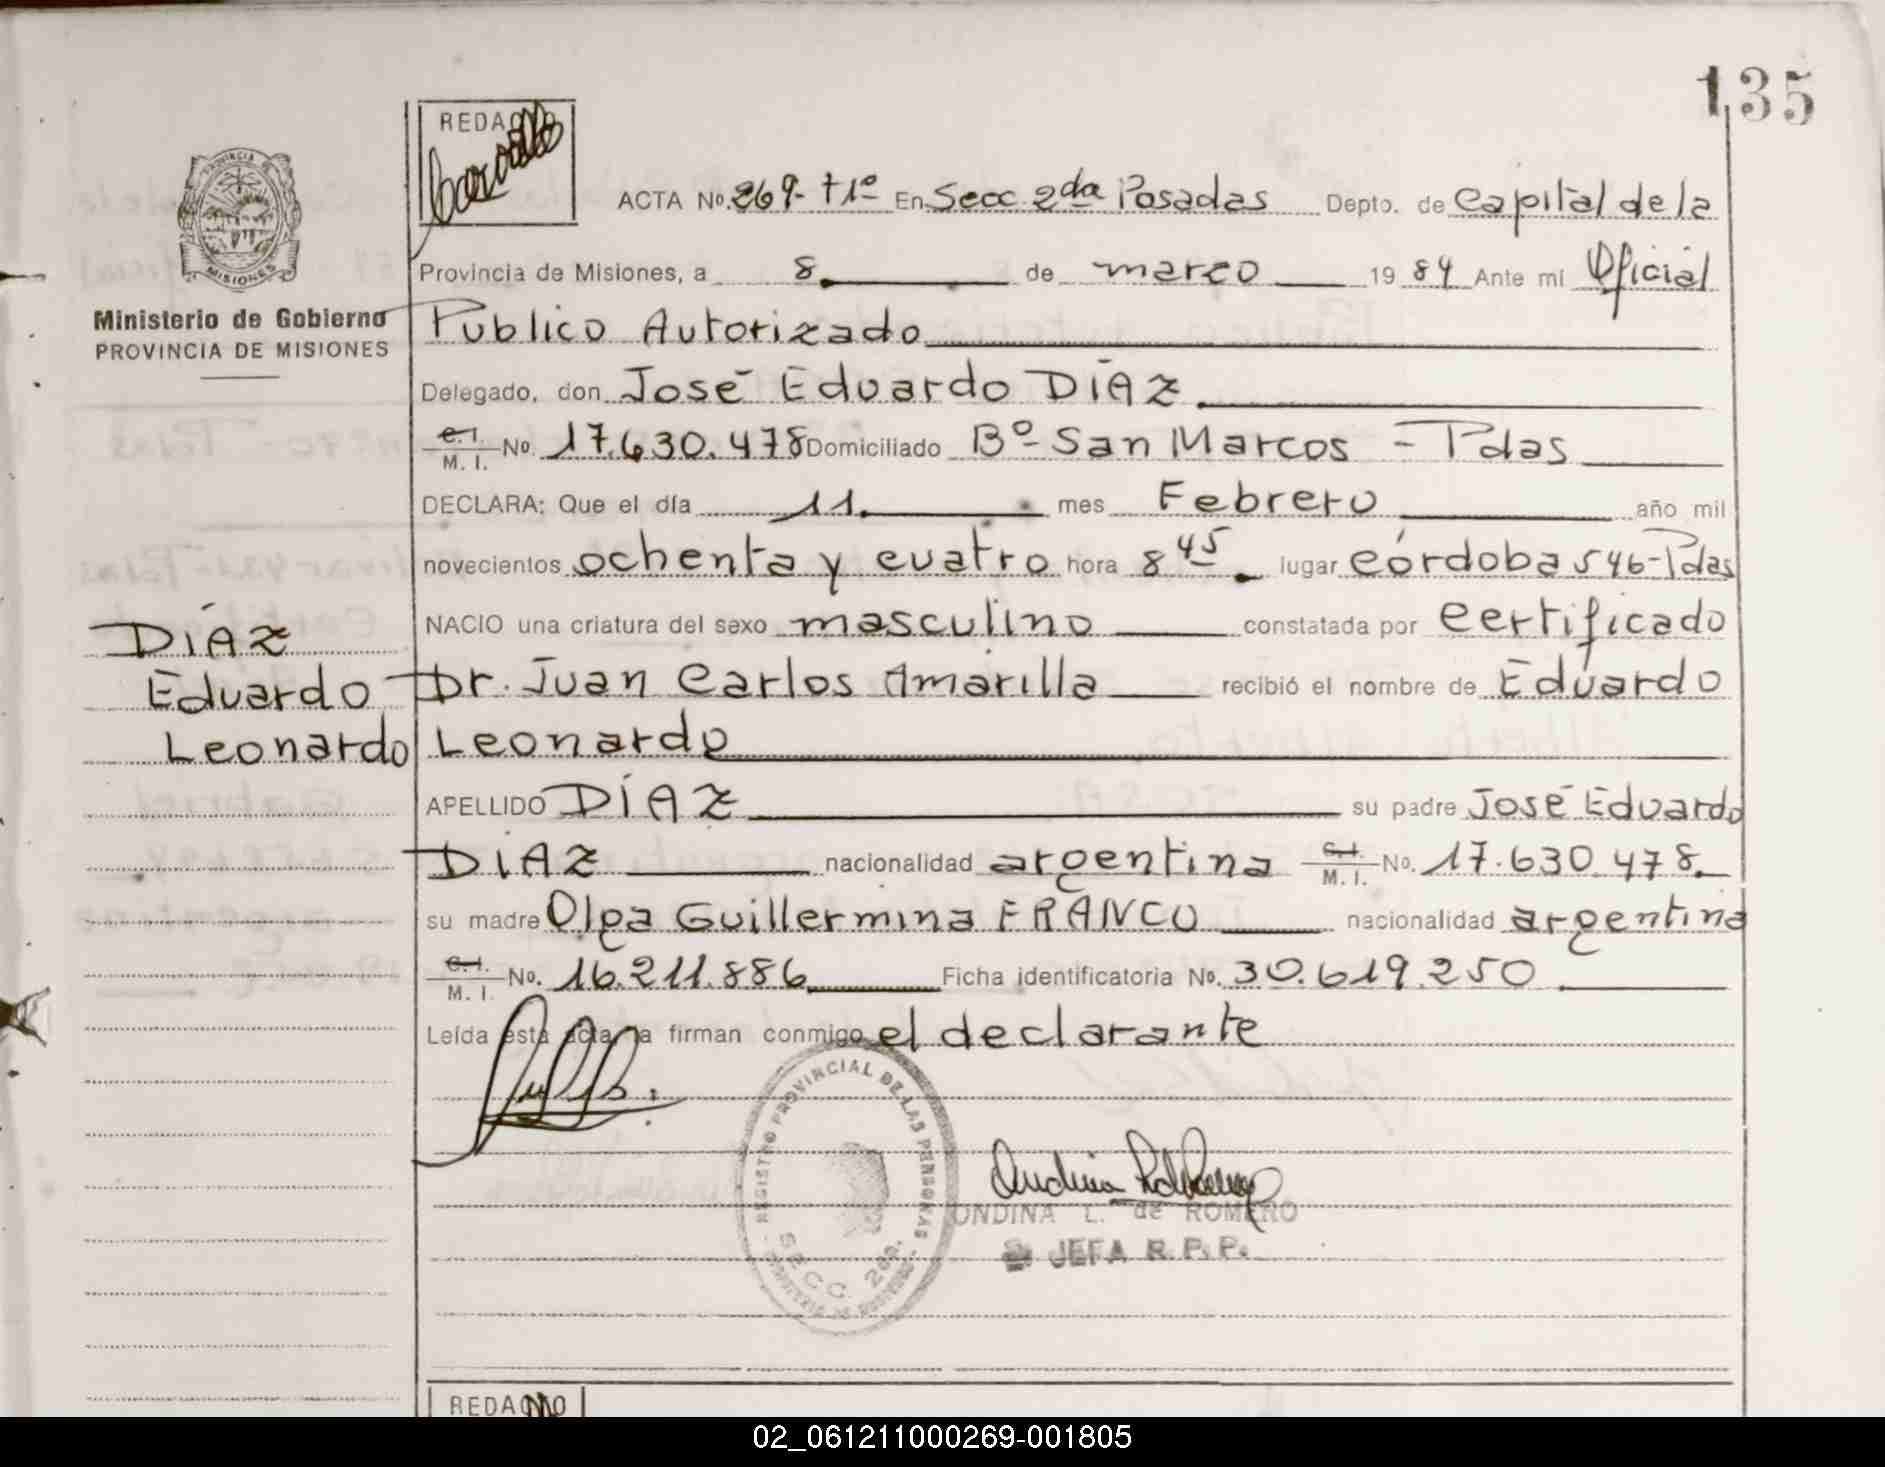 135
REDACTO
ACTA No. 269- T1º En Secc 2da Posadas Depto. de Capital de la
PROVINCIA DE MISIONES
Provincia de Misiones, a 8 de marzo 19 84 Ante mí Oficial
Ministerio de Gobierno
PROVINCIA DE MISIONES
Publico Autorizado
Delegado, don José Eduardo DÍAZ
C.I. M.I. No. 17.630.478 Domiciliado Bº San Marcos - Pdas
DECLARA: Que el día 11 mes Febrero año mil
novecientos ochenta y cuatro hora 8 45 lugar córdoba 546-Pdas
NACIO una criatura del sexo masculino constatada por certificado
DÍAZ
Eduardo
Leonardo
Dr. Juan Carlos Amarilla recibió el nombre de Eduardo
Leonardo
APELLIDO DÍAZ su padre José Eduardo
DIAZ nacionalidad argentina C.I. M.I. No. 17.630.478
su madre Olga Guillermina FRANCO nacionalidad argentina
C.I. M.I. No. 16.211.886 Ficha identificatoria No. 30.619.250
Leída esta acta la firman conmigo el declarante
REGISTRO PROVINCIAL DE LAS PERSONAS
SECC. 2da.
ONDINA L. de ROMERO
JEFA R.P.P.
REDACTO
02_061211000269-001805